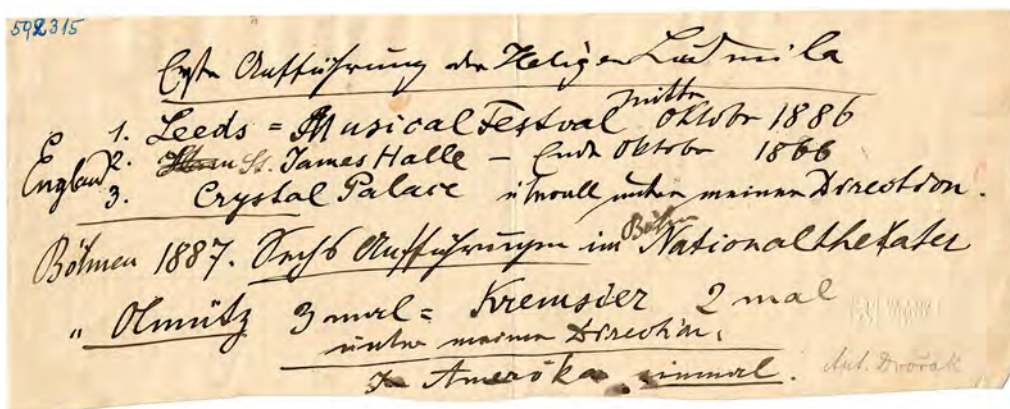 592315
Erste Aufführung der Heligen Ludmila
1. Leeds = Musical Festval Mitte Oktobr 1886
England 2. St. James Halle – Ende Oktobr 1866
3. Crystal Palace überall unter meiner Direction.
Böhmen 1887. Sechs Aufführungen im Böhm Nationaltheater
" Olmütz 3 mal = Kremsier 2 mal
unter meiner Direction.
In Amerika einmal.
Ant. Dvořák